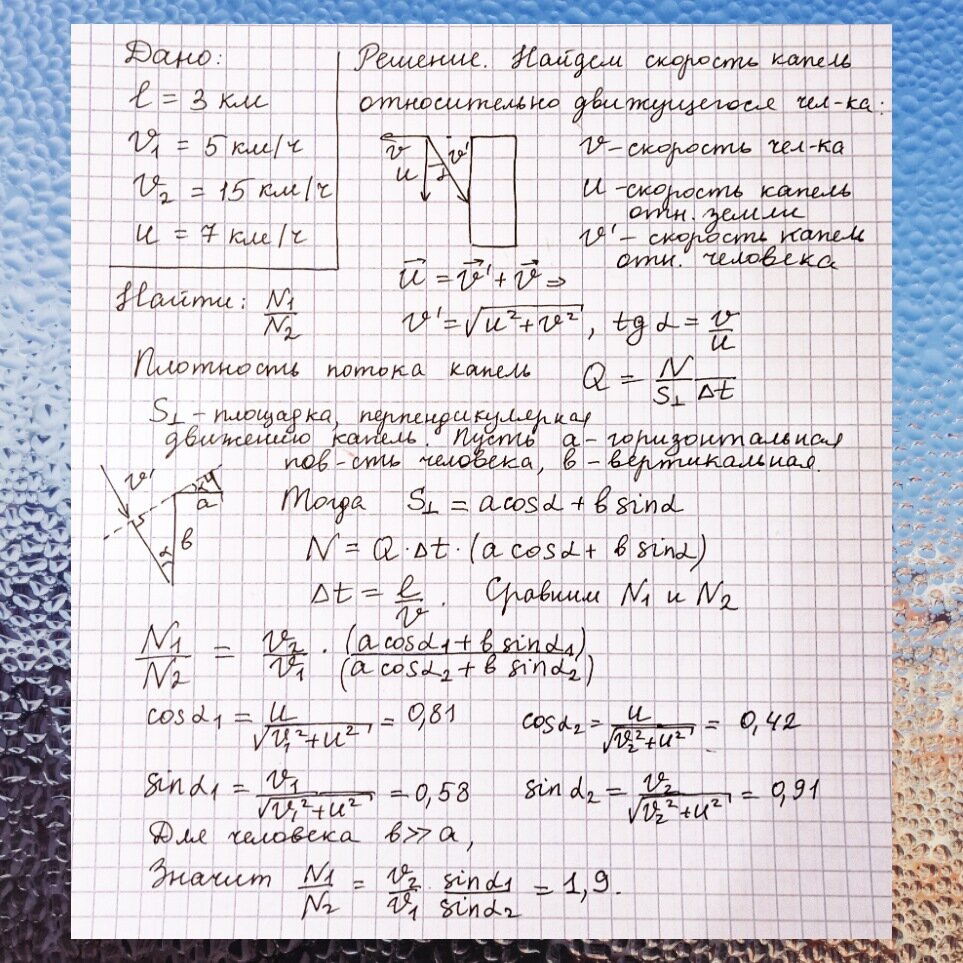 Дано:
l = 3 км
v₁ = 5 км/ч
v₂ = 15 км/ч
u = 7 км/ч
Найти: N₁/N₂
Решение. Найдем скорость капель
относительно движущегося чел-ка:
v v'
u α
v – скорость чел-ка
u – скорость капель
отн. земли
v' – скорость капель
отн. человека
u⃗ = v⃗' + v⃗ ⇒
v' = √(u² + v²), tg α = v/u
Плотность потока капель Q = N/(S⊥ Δt)
S⊥ – площадка, перпендикулярная
движению капель. Пусть a – горизонтальная
пов-сть человека, в – вертикальная.
v'
a
α в
Тогда S⊥ = a cosα + в sinα
N = Q · Δt · (a cosα + в sinα)
Δt = l/v. Сравним N₁ и N₂
N₁/N₂ = v₂/v₁ · (a cosα₁ + в sinα₁)/(a cosα₂ + в sinα₂)
cosα₁ = u/√(v₁² + u²) = 0,81 cosα₂ = u/√(v₂² + u²) = 0,42
sinα₁ = v₁/√(v₁² + u²) = 0,58 sinα₂ = v₂/√(v₂² + u²) = 0,91
Для человека в >> a,
Значит N₁/N₂ = v₂/v₁ · sinα₁/sinα₂ = 1,9.